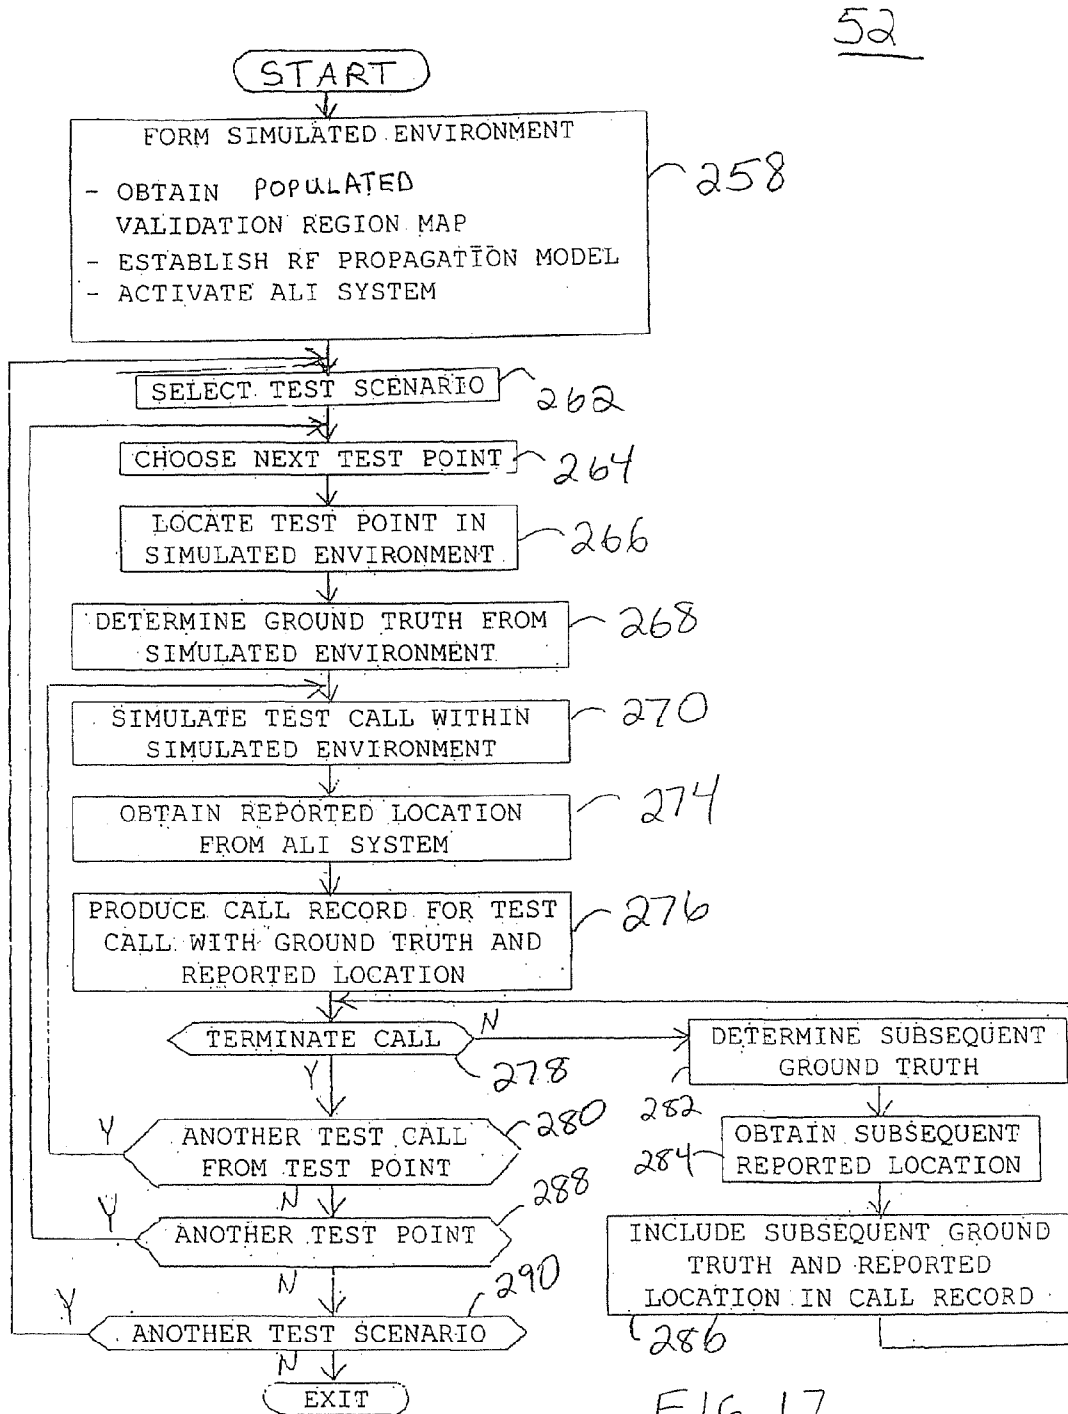 52
START
FORM SIMULATED ENVIRONMENT
- OBTAIN POPULATED
VALIDATION REGION MAP
- ESTABLISH RF PROPAGATION MODEL
- ACTIVATE ALI SYSTEM
258
SELECT TEST SCENARIO
262
CHOOSE NEXT TEST POINT
264
LOCATE TEST POINT IN
SIMULATED ENVIRONMENT
266
DETERMINE GROUND TRUTH FROM
SIMULATED ENVIRONMENT
268
SIMULATE TEST CALL WITHIN
SIMULATED ENVIRONMENT
270
OBTAIN REPORTED LOCATION
FROM ALI SYSTEM
274
PRODUCE CALL RECORD FOR TEST
CALL WITH GROUND TRUTH AND
REPORTED LOCATION
276
TERMINATE CALL
N
Y
278
DETERMINE SUBSEQUENT
GROUND TRUTH
282
ANOTHER TEST CALL
FROM TEST POINT
Y
N
280
OBTAIN SUBSEQUENT
REPORTED LOCATION
284
ANOTHER TEST POINT
Y
N
288
INCLUDE SUBSEQUENT GROUND
TRUTH AND REPORTED
LOCATION IN CALL RECORD
286
ANOTHER TEST SCENARIO
Y
N
290
EXIT
FIG. 17